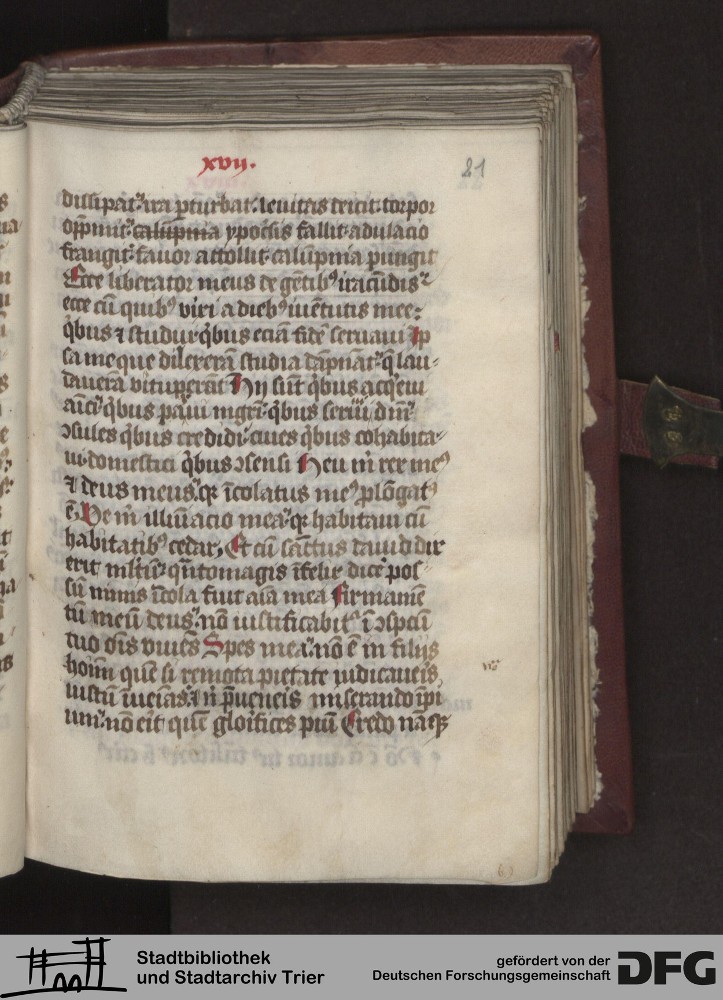 xvij.
21
dissipat. ira pturbat. leuitas eicit. torpor
opp̄mit. calūpnia ypocͥsis fallit adulacio
frangit. fauor attollit calūpnia pungit
Ecce liberator meus de gētibꝰ iracūdis
ecce cū quibꝰ vixi a diebꝰ iuētutis mee:
qͥbus ⁊ studui qͥbus eciā fidē seruaui Ip
sa me que dilexerā studia dāpnāt. q̄ lau-
dauerā vituperāt Hij sūt qͥbus acqͥeui
qͥbus credidi. ciues qͥbus cohabita-
ui. domestici qͥbus ɔsensi Heu m̄ rex meꝰ
⁊ deus meus. qꝛ īcolatus meꝰ plōgatꝰ
ē. Ve m̄ illūiacio mea. qꝛ habitaui cū
habitātibꝰ cedar, Et cū sāctus dauid dix
erit mltū. qͣntomagis īfelix dicē pos-
sū nimis īcola fuit aīa mea Firmamē
tū meū deus. nō iustificabitᷣ ī ɔspcū
tuo oīs viuēs Spes mea. nō ē in filijs
hoīm quē si remota pietate iudicaueris,
iustū īueīas. ⁊ n̄ p̄ueneis miserando īpi
um. nō eīt quē gloīfices piū Credo nāqꝫ
Stadtbibliothek
und Stadtarchiv Trier
gefördert von der
Deutschen Forschungsgemeinschaft
DFG